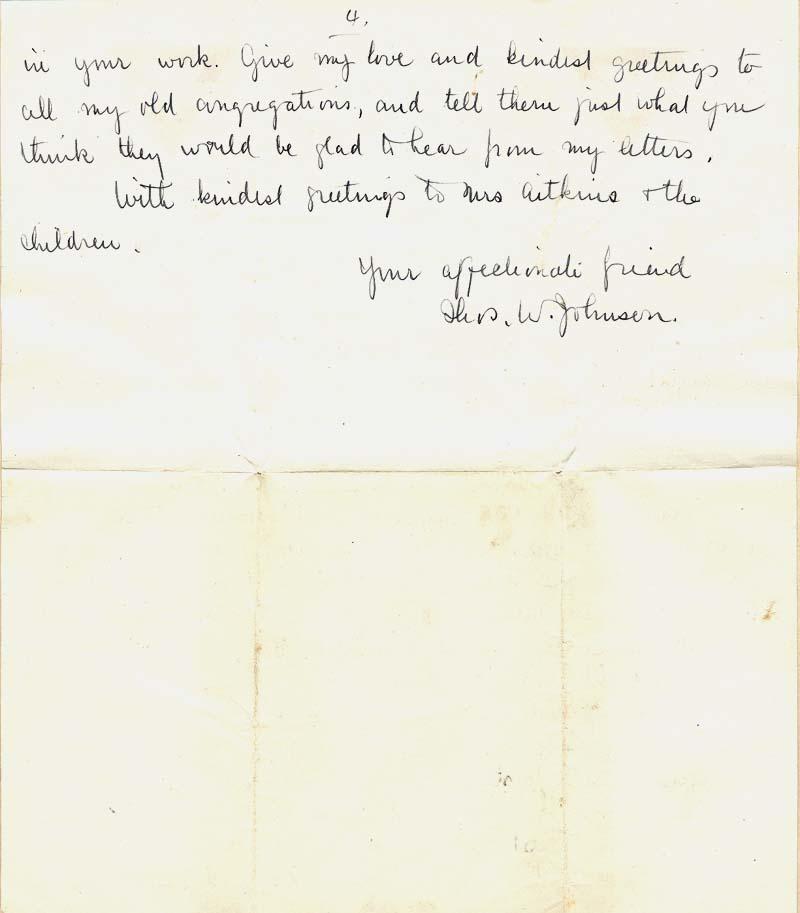 4.
in your work. Give my love and kindest greetings to
all my old congregations, and tell them just what you
think they would be glad to hear from my letters.
With kindest greetings to Mrs Aitkins + the
children.
Your affectionate friend
Thos. W. Johnson.